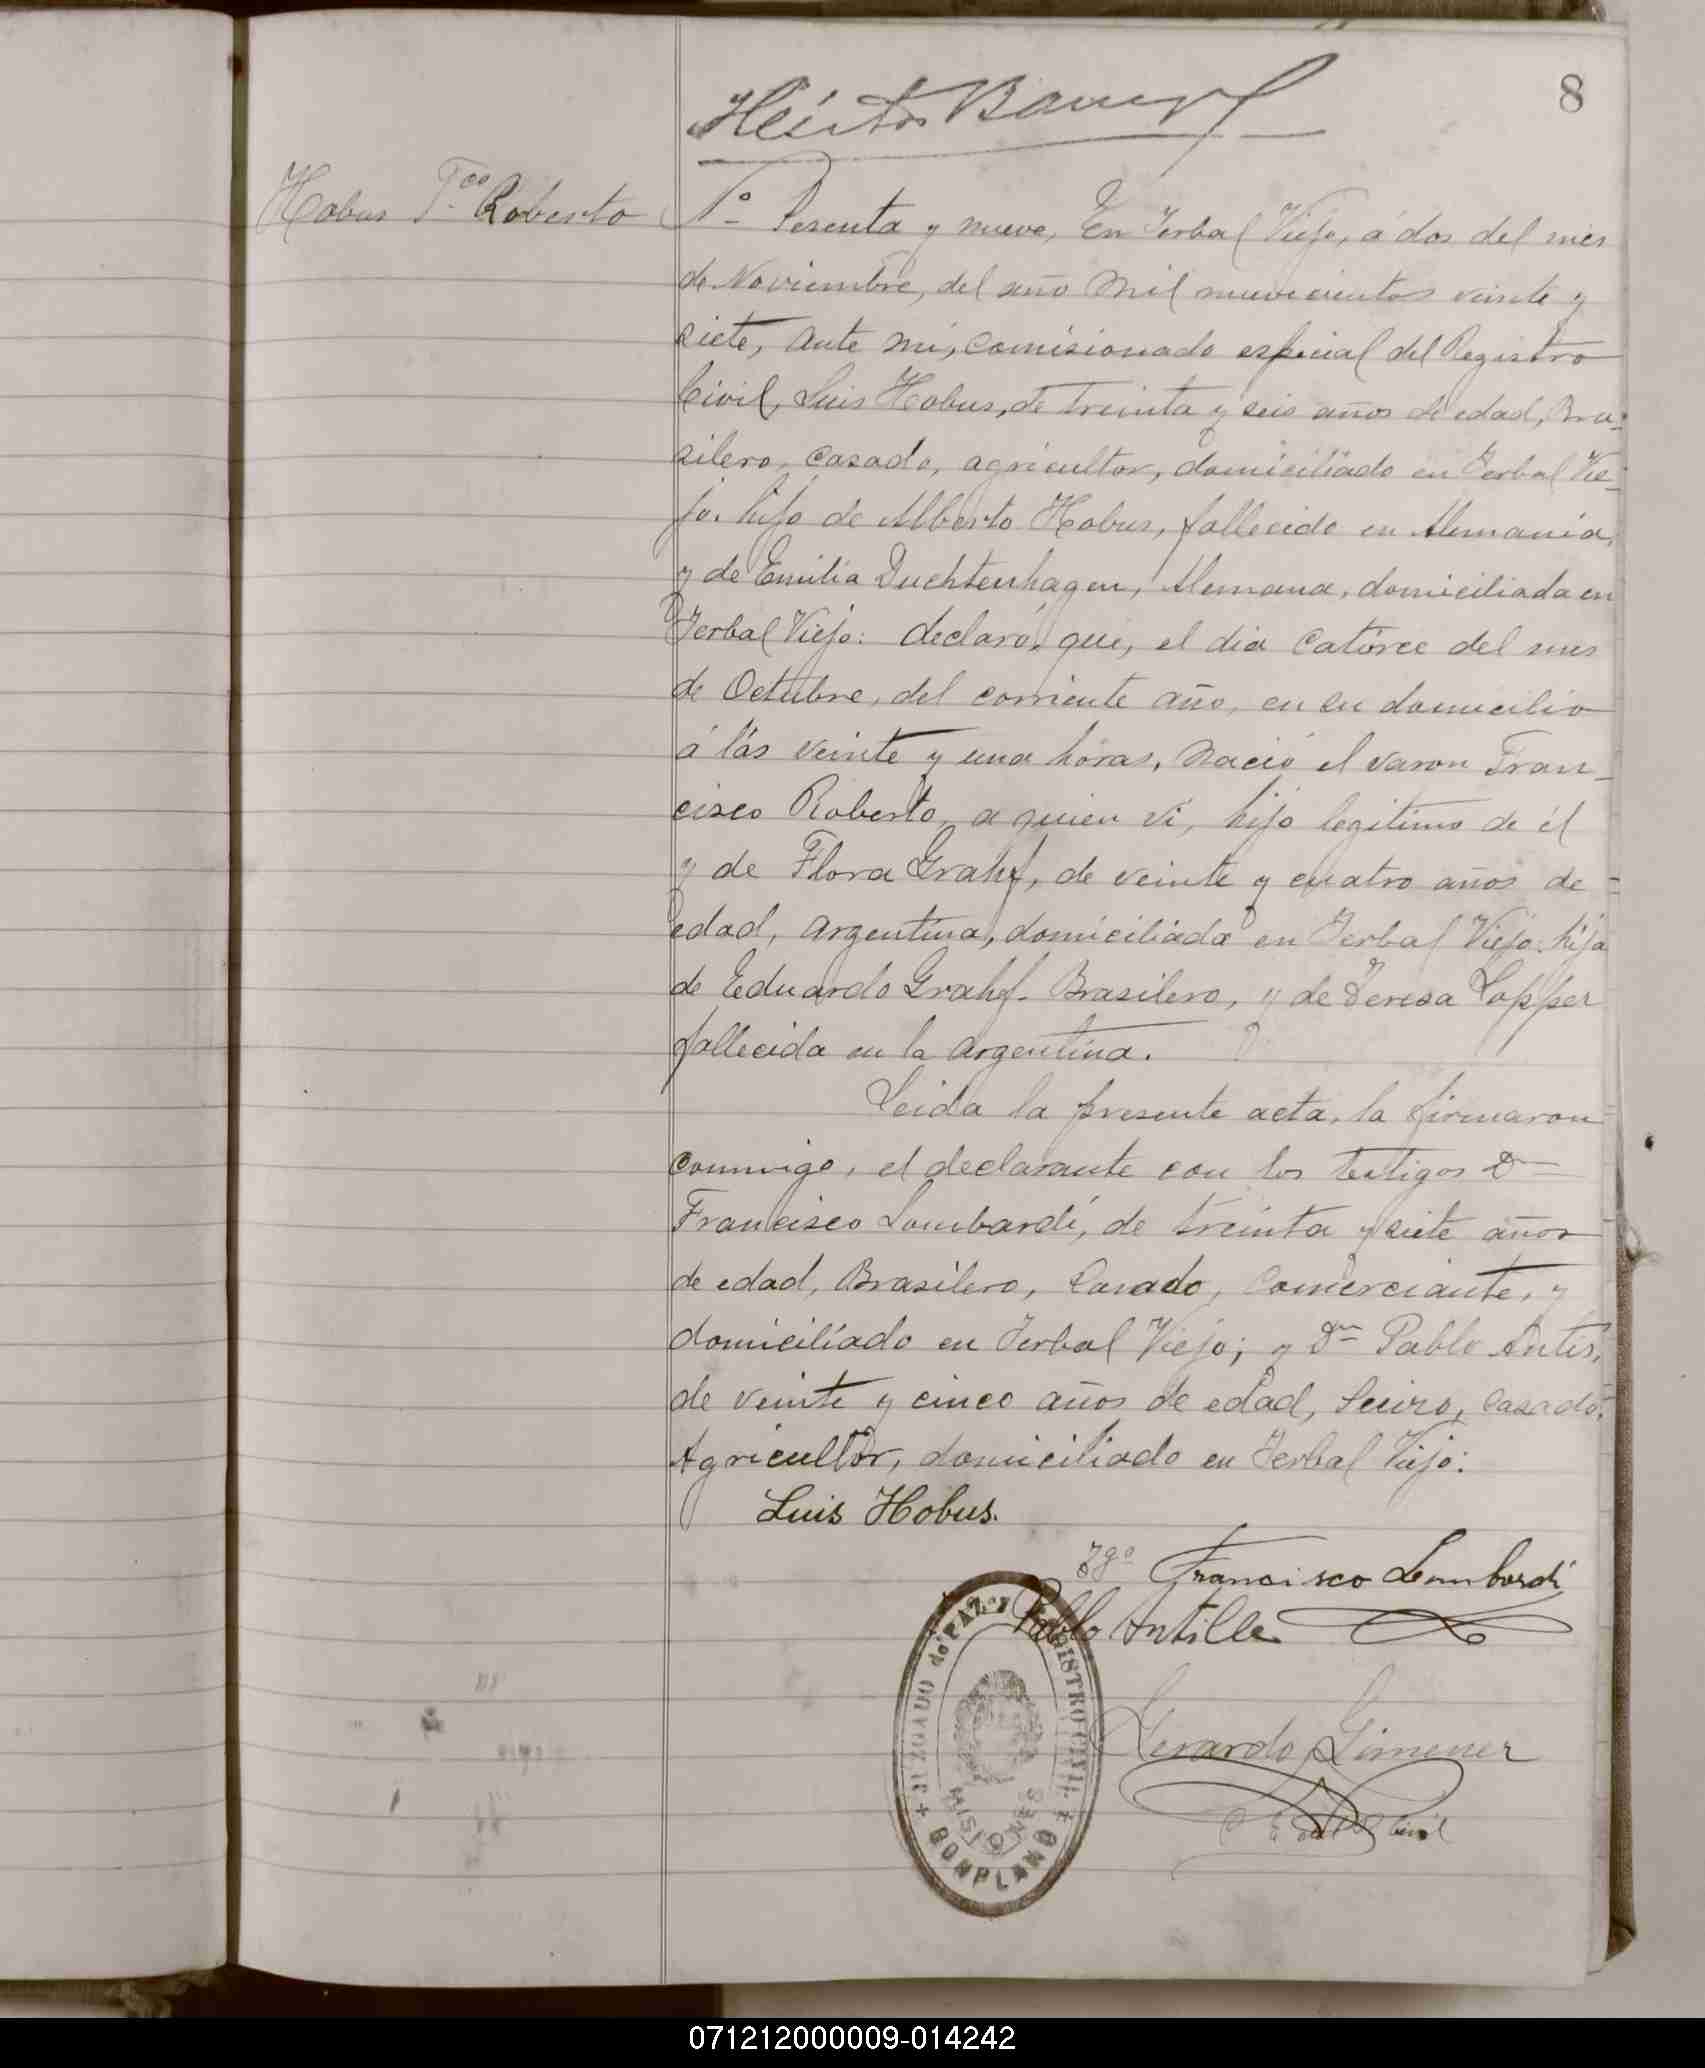 8
Héctor
Hobus F.co Roberto
N.o Sesenta y nueve, En Yerbal Viejo, á dos del mes
de Noviembre, del año mil nuevecientos veinte y
siete, ante mí, comisionado especial del Registro
Civil, Luis Hobus, de treinta y seis años de edad, Bra-
silero, casado, agricultor, domiciliado en Yerbal Vie-
jo. hijo de Alberto Hobus, fallecido en Alemania,
y de Emilia Duchtenhagen, Alemana, domiciliada en
Yerbal Viejo: declaró, que, el dia catorce del mes
de Octubre, del corriente año, en su domicilio
á lás veinte y una horas, nació el varon Fran-
cisco Roberto, a quien vi, hijo legitimo de él
y de Flora Grahf, de veinte y cuatro años de
edad, argentina, domiciliada en Yerbal Viejo: hija
de Eduardo Grahf. Brasilero, y de Teresa Lopper
fallecida en la argentina.
Leida la presente acta, la firmaron
conmigo, el declarante con los testigos Dn
Francisco Lombardí, de treinta y siete años
de edad, Brasilero, Casado, Comerciante, y
domiciliado en Yerbal Viejo; y Dn Pablo Antis,
de veinte y cinco años de edad, Suizo, casado,
Agricultor, domiciliado en Yerbal Viejo:
Luis Hobus.
Tgo Francisco Lombardi
Pablo Antille
JUZGADO de PAZ y REGISTRO CIVIL
MISIONES
BONPLAND
Gerardo Gimenez
071212000009-014242